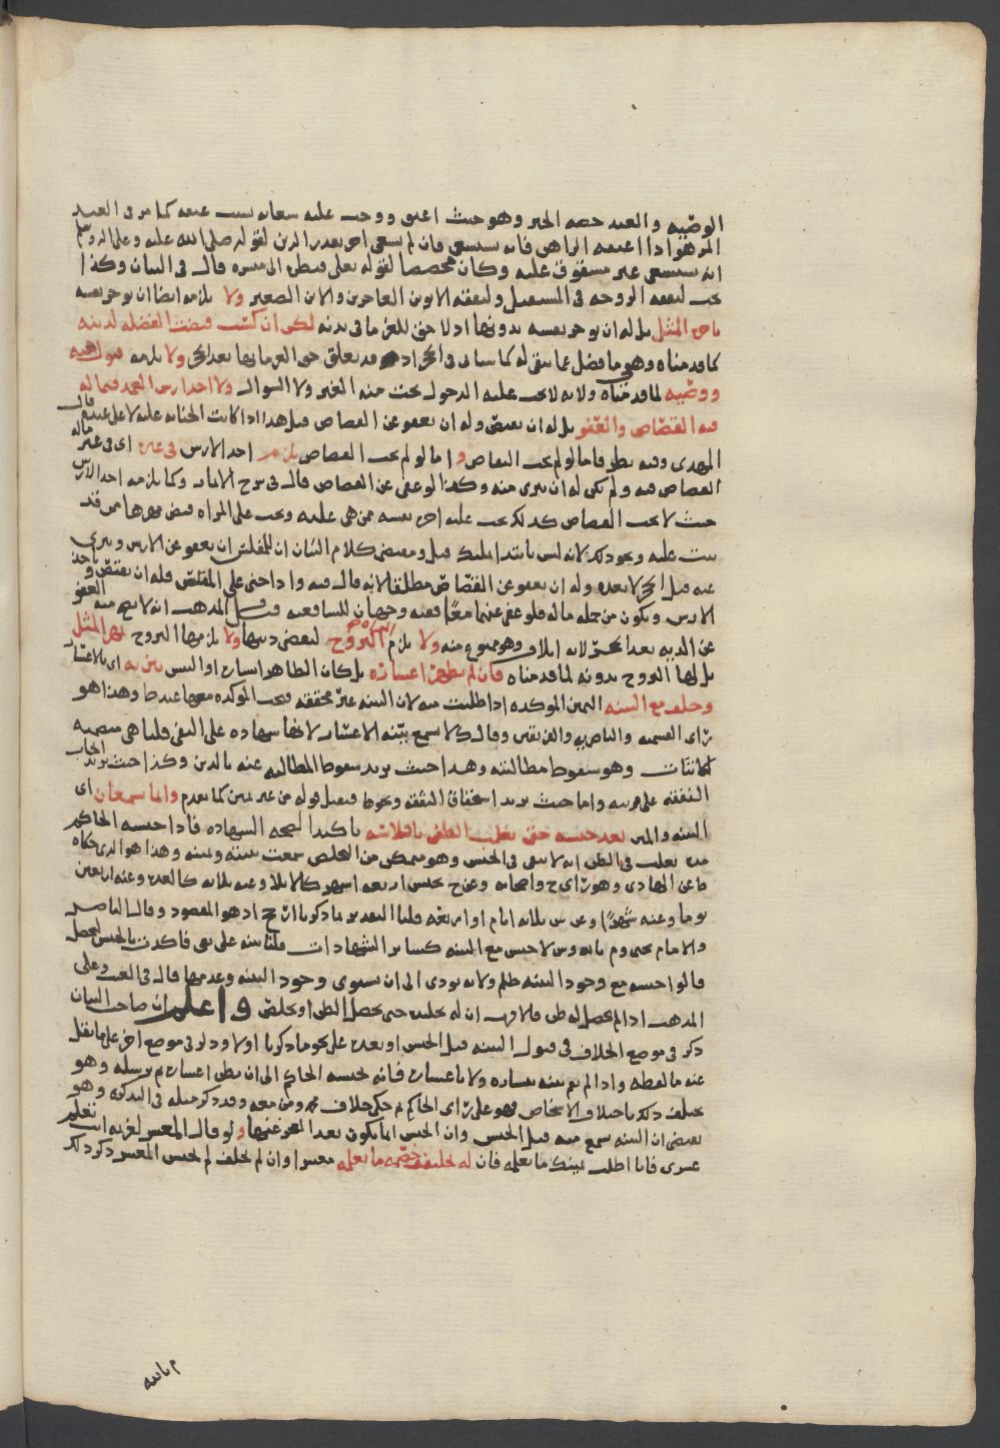 الوصية والعبد حصه الخبر وهو حيث اعتق ووجب عليه سعايه بسبب عتقه كما مر في العبد
المرهون اذا اعتقه الراهن فانه يستسعى فان لم يسعى اجر بقدر الدين لقوله صلى الله عليه وعلى اله وسلم
انه يستسعى غير مشقوق عليه وكان مخصصا لقوله تعالى فنظرة الى ميسرة قال في البيان وكذا
يجب لنفقه الزوجه في المستقبل ولنفقه الابوين العاجزين والابن الصغير ولا يلزمه ايضا ان يوجر نفسه
باجر المثل بل له ان يوجر نفسه بدونها اذ لا حق للغرما في بدنه لكن ان كسب قبضت الفضله لدينه
كما قدمناه وهي ما فضل عما يبقى له كما سياتي في الحجر اذ قد تعلق حق الغرما بها بعد الحجر ولا يلزمه قبول الهبه
ووصيه لما قدمناه ولانه لا يجب عليه الدخول تحت منه الغير ولا السوال ولا اخذ ارش العمد فيما له
فيه القصاص والعفو بل له ان يقتص وله ان يعفو عن القصاص قيل هذا اذا كانت الجنايه عليه لا على عبده قال
المهدي وفيه نظر فاما لو لم يجب القصاص واما لو لم يجب القصاص يلزمه اخذ الارش في غيره اي في غير ماله
القصاص فيه ولم يكن له ان يبري منه وكذا لو عفى عن القصاص قال في شرح الاثمار وكما يلزمه اخذ الارش
حيث لا يجب القصاص كذلك يجب عليه اجره نفسه ممن هي عليه ويجب على المراه قبض مهرها ممن قد
ثبت عليه ونحو ذلك لانه ليس بابتدا تمليك قيل ومقتضى كلام البيان ان للمفلس ان يعفو عن الارش ويبري
عنه قبل الحجر لا بعده وله ان يعفو عن القصاص مطلقا لانه قال فيه واذا جني على المفلس فله ان يقتص واخذ
الارش ويكون من جمله ماله فلو عفى عنهما معا ففيه وجهان للشافعيه قيل المذهب انه لا يصح منه العفو
عن الديه بعد الحجر لانه اتلاف وهو ممنوع منه ولا يلزم المراه التزوج لتقضي دينها ولا يلزمها التزوج بمهر المثل
بل لها التزوج بدونه لما قدمناه فان لم يظهر اعساره بل كان الظاهر ايساره او التبس بين به اي بالاعسار
وحلف مع البينه اليمين الموكده اذا طلبت منه لان البينه غير محققه فتجب الموكده معها عندنا وهذا هو
راي القسميه والناصريه والفريقين وقال ك لا تسمع بينه الاعسار لانها شهاده على النفي قلنا هي متضمنه
للاثبات وهو سقوط مطالبته وهذا حيث يريد سقوط المطالبه عنه بالدين وكذا حيث يريد ايجاب
النفقه على قريبه واما حيث يريد استحقاق النفقه ونحوها فيقبل قوله من غير يمين كما تقدم وانما يسمعان اي
البينه واليمين بعد حبسه حتى يغلب الظن بافلاسه تاكيدا لصحه الشهاده فاذا حبسه الحاكم
مده يغلب في الظن انه لا يبقى في الحبس وهو متمكن من التخلص سمعت بينته ويمينه وهذا هو الذي حكاه
ط عن الهادي وهو راي ح واصحابه وعن ح يحبس اربعه اشهر كالايلا وعنه ثلاثه كالعده وعنه اربعين
يوما وعنه شهرا وعن ش ثلاثه ايام او اربعه قلنا التقدير بما ذكرنا ارجح اذ هو المقصود وقال الناصر
والامام يحيى وم بالله وش لا حبس مع البينه كسائر الشهادات قلنا بينه على نفي فاكدت بالحبس ليحصل
قالوا حبسه مع وجود البينه ظلم ولانه يودي الى ان يستوي وجود البينه وعدمها قال في الغيث وعلى
المذهب اذا لم يحصل له ظن فالاقرب ان له تحليفه حتى يحصل الظن او يخلص واعلم ان صاحب البيان
ذكر في موضع الخلاف في قبول البينه قبل الحبس او بعده على نحو ما ذكرنا اولا وذكر في موضع اخر على ما نقل
عنه ما لفظه واذا لم تقم بينه بيساره ولا باعساره فانه يحبسه الحاكم الى ان يظن اعساره ثم يرسله وهو
يختلف ذلك باختلاف الاشخاص فهو على راي الحاكم ثم حكى خلاف محمد ومن معه وقد ذكر مثله في التذكره وهو
يقتضي ان البينه تسمع منه قبل الحبس وان الحبس انما يكون بعد العجز عنها ولو قال المعسر لغريمه انت تعلم
عسري فانا اطلب يمينك ما تعلمه فان له تحليف خصمه ما يعلمه معسرا وان لم يحلف لم يحبس المعسر ذكر ذلك
م بالله